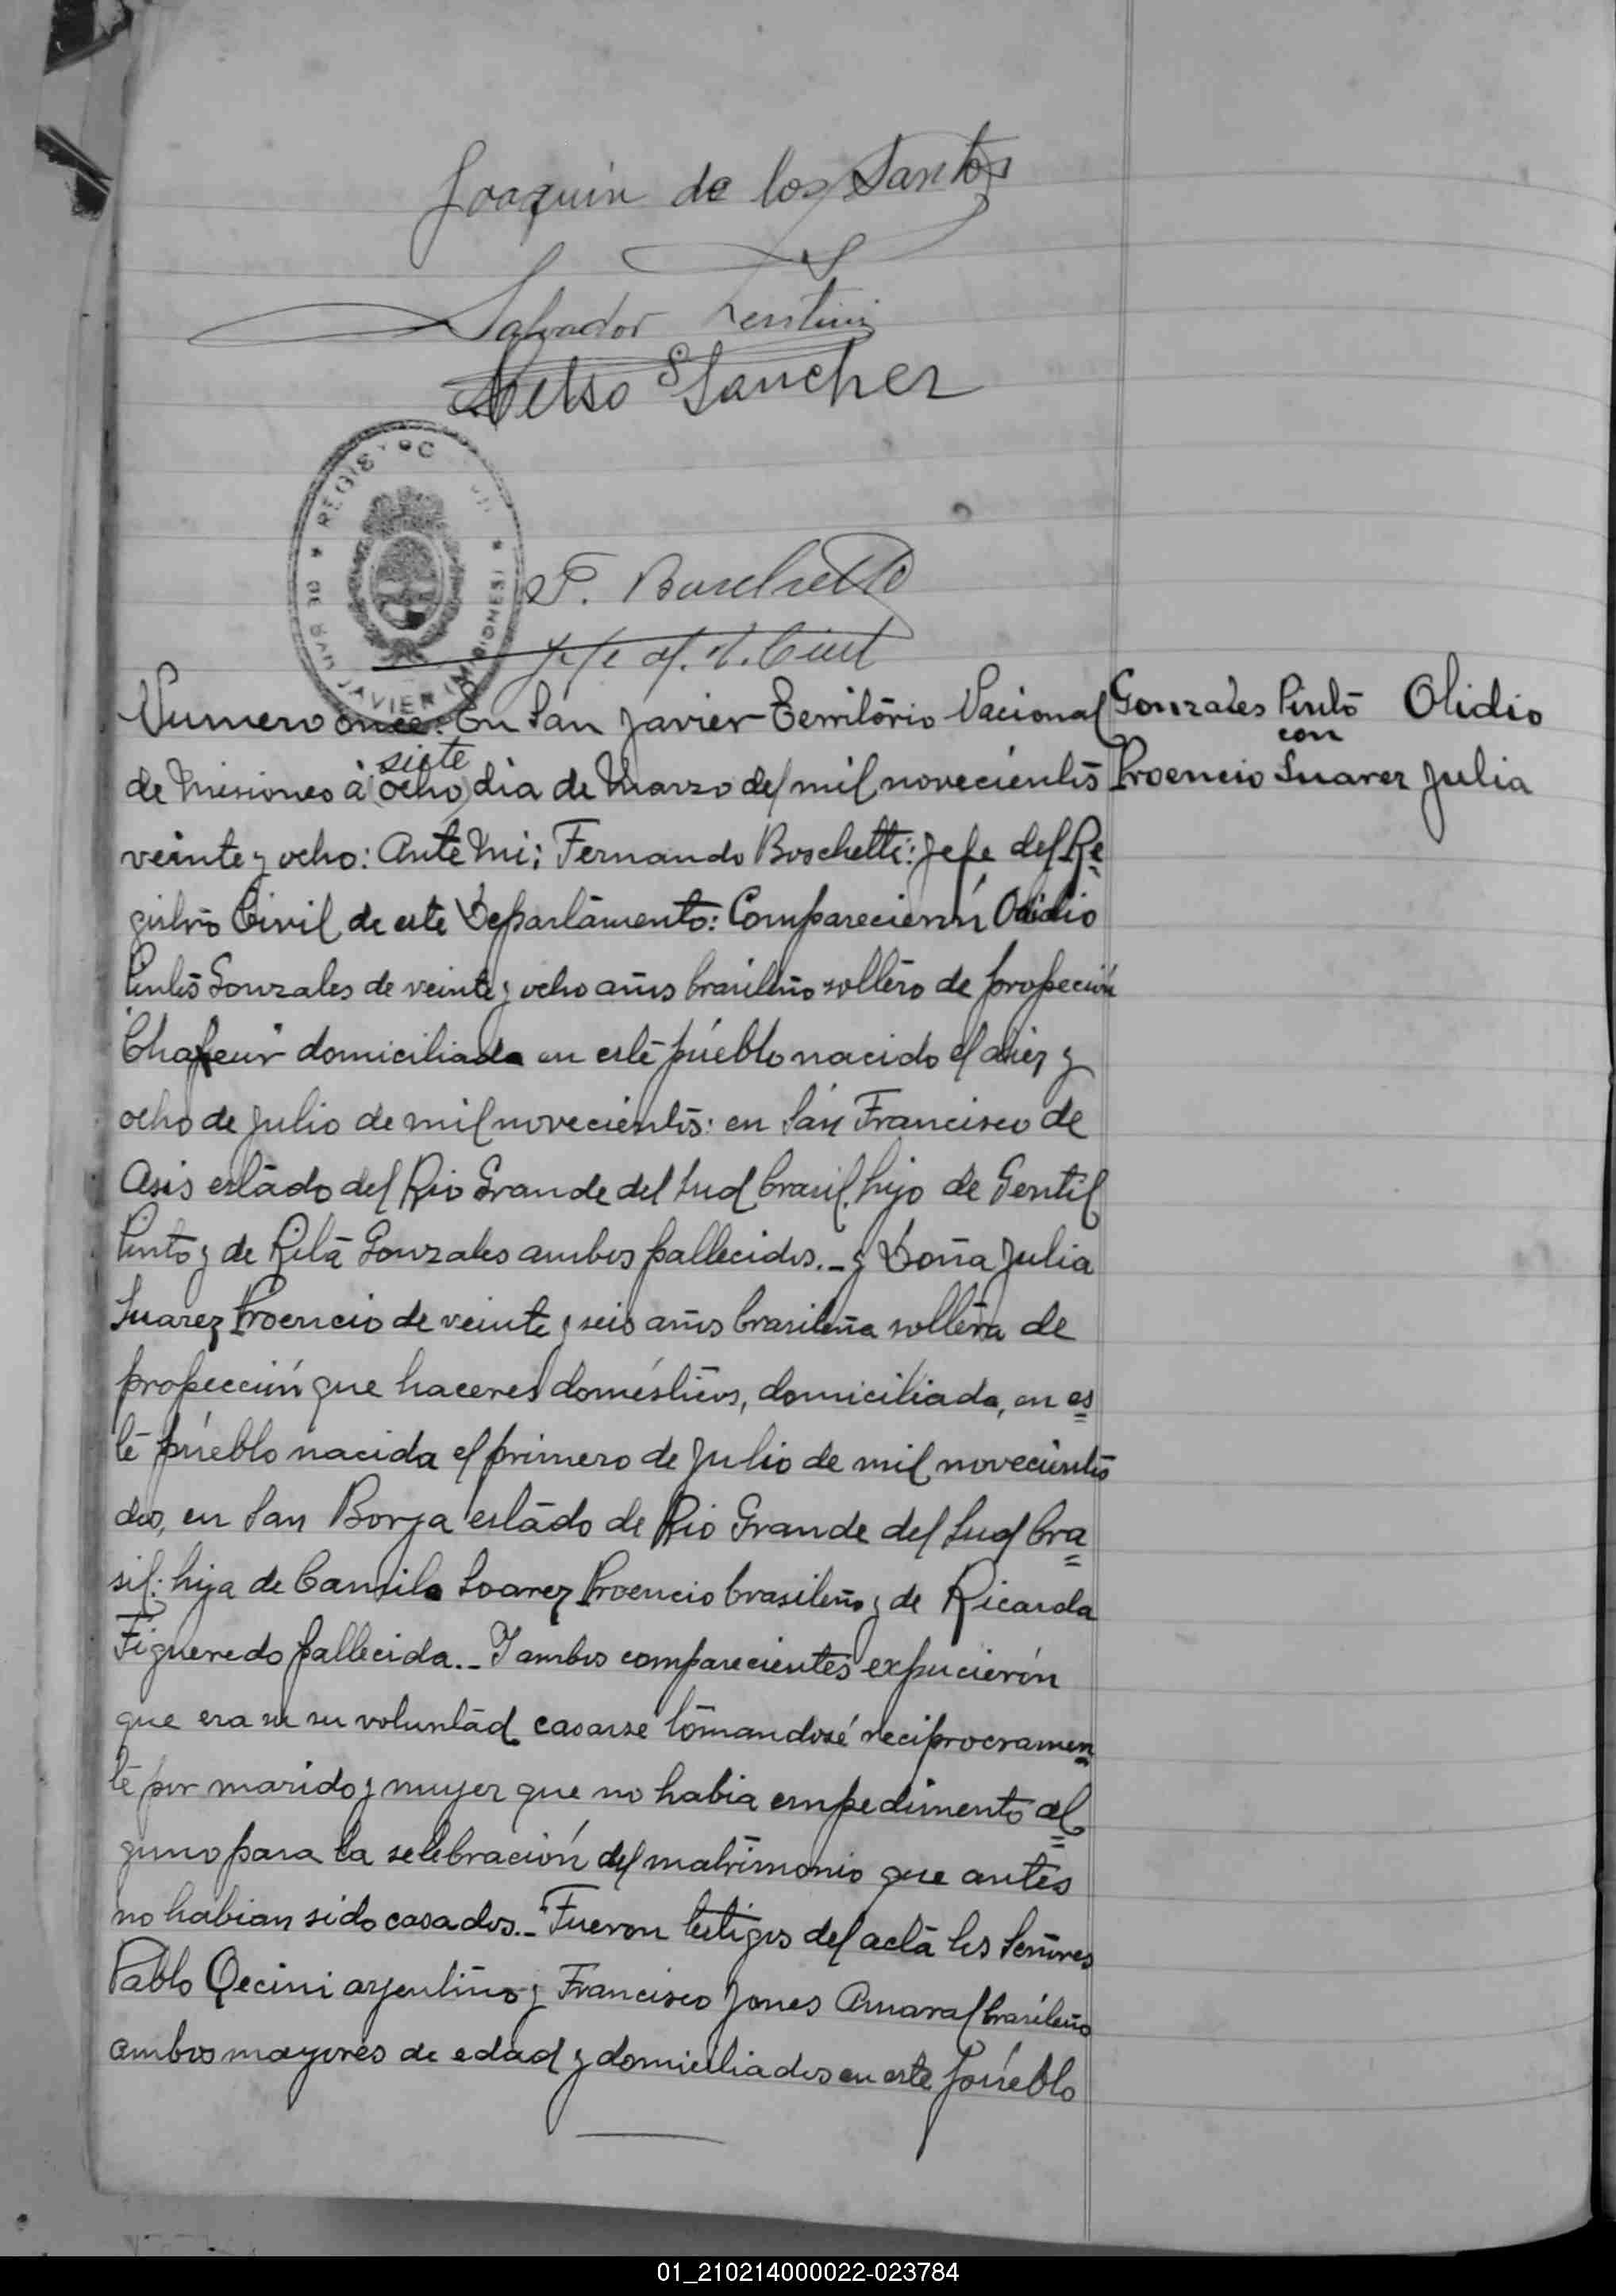 Joaquin de los Santos
Salvador
Celso S Sanchez
REGIS
DE SAN JAVIER (MISIONES)
F. Boschetti
Jefe del R. Civil
Numero once: En San Javier Territorio Nacional
siete
de Misiones á (ocho) dia de Marzo del mil novecientos
veinte y ocho: Ante Mi; Fernando Boschetti: Jefe del Re
gistro Civil de este Departamento: Comparecierón Olidio
Pinto Gonzales de veinte y ocho años brasileño soltero de profeción
"Chafeur" domiciliado en este púeblo nacido el diez y
ocho de Julio de mil novecientos: en San Francisco de
Asis estado del Rio Grande del Sud brasil. hijo de Gentil
Pinto y de Rita Gonzales ambos fallecidos._ y Doña Julia
Suarez Proencio de veinte y seis años brasileña soltera de
profección que haceres domésticos, domiciliada, en es
te púeblo nacida el primero de Julio de mil novecientos
dos, en San Borja estado de Rio Grande del Sud bra
sil: hija de Camilo Soarez Proencio brasileño y de Ricarda
Figueredo fallecida._ Y ambos comparecientes expucierón
que era su su voluntad casarse tomandosé reciprocramen
te por marido y mujer que no habia empedimento al
guno para la selebración del matrimonio que antes
no habian sido casados._ Fueron testigos del acta los Señores
Pablo Qecini argentino y Francisco Jones Amaral brasileño
ambos mayores de edad y domiciliados en este púeblo
Gonzales Pinto Olidio
con
Proencio Suarez Julia
01_210214000022-023784